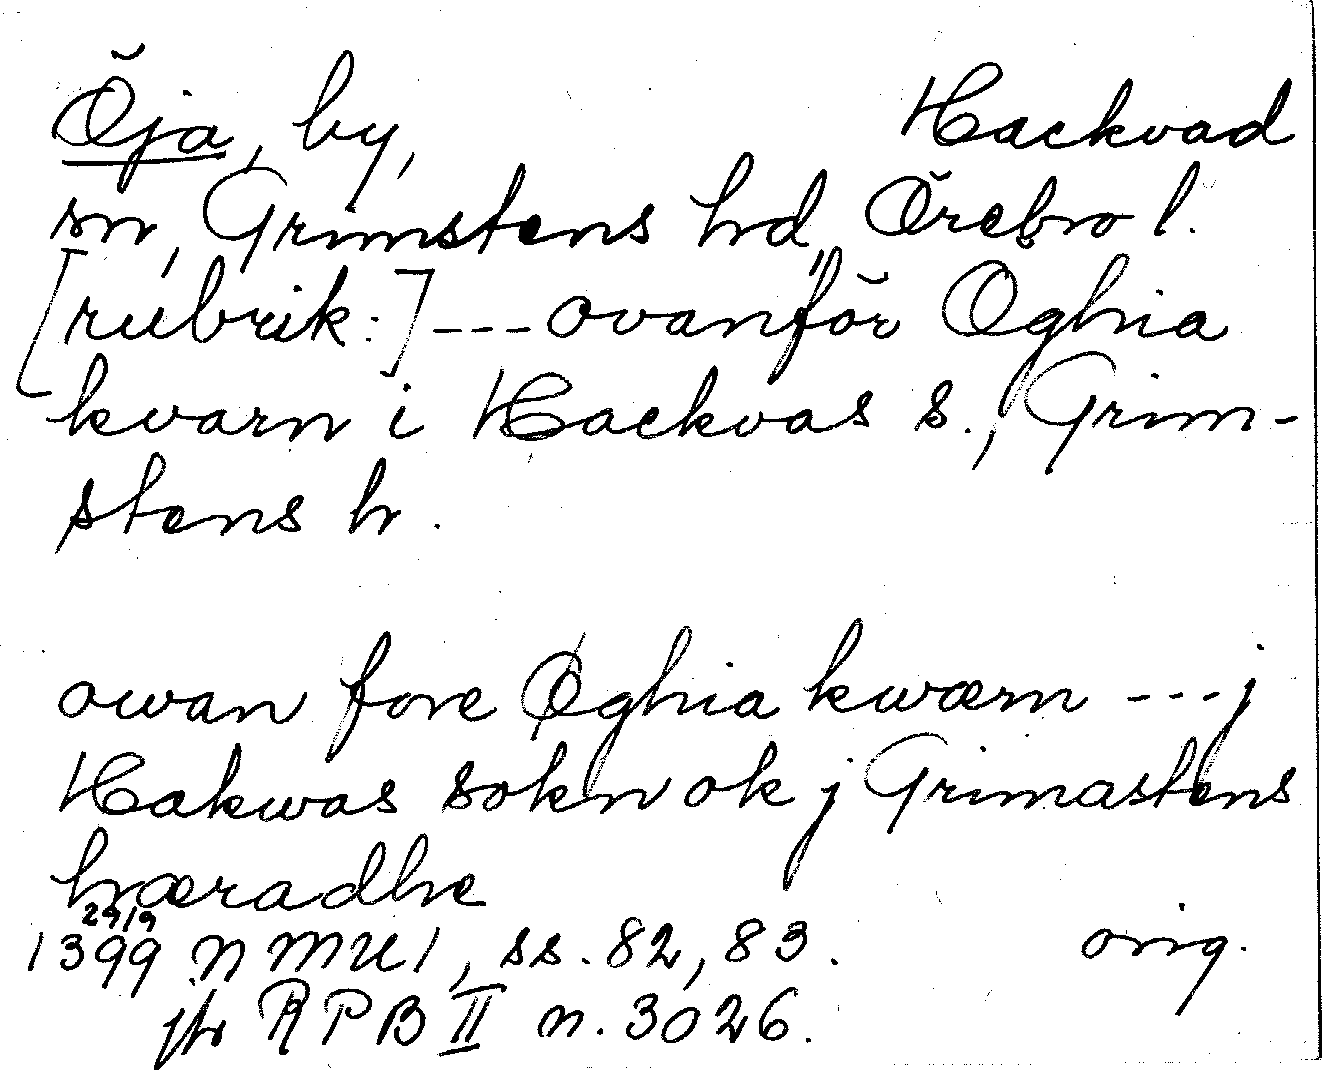 Öja, by, Hackvad
sn, Grimstens hd, Örebro l.
[rubrik:] --- ovanför Oghia
kvarn i Hackvas s., Grim-
stens h.
owan fore Øghia kwærn --- j
Hakwas sokn ok j Grimastens
hæradhe
29/9
1399 NMU 1, ss. 82, 83. orig.
jfr RPB II n. 3026.